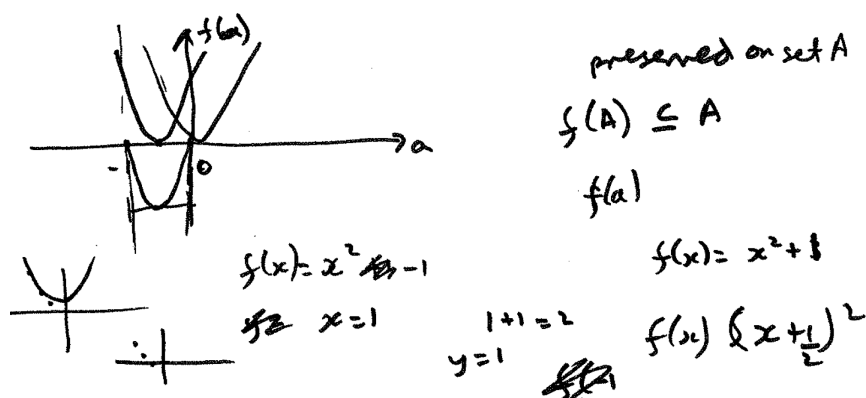 f(a)
a
-
0
preserved on set A
f(A) ⊆ A
f(a)
f(x) = x² - 1
x = 1
1 + 1 = 2
y = 1
f(x) = x² + 1
f(x) (x + 1/2)²